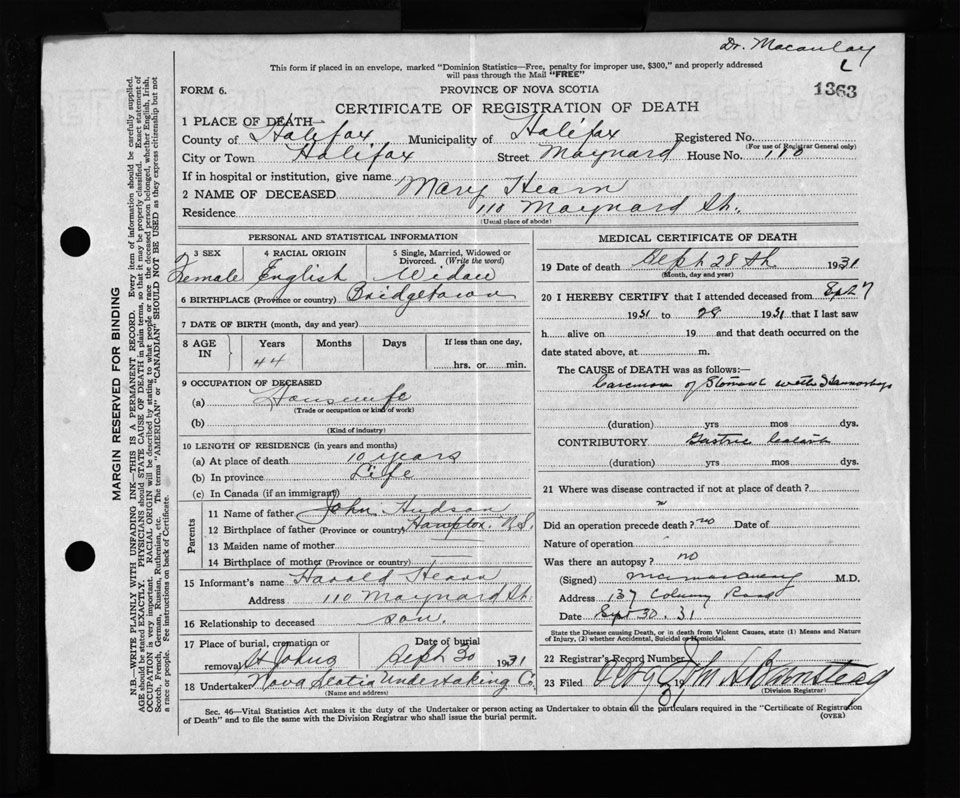 Dr. Macaulay
L
This form if placed in an envelope, marked "Dominion Statistics—Free, penalty for improper use, $300," and properly addressed
will pass through the Mail "FREE"
FORM 6.
PROVINCE OF NOVA SCOTIA
1363
CERTIFICATE OF REGISTRATION OF DEATH
1 PLACE OF DEATH
County of Halifax Municipality of Halifax Registered No.
(For use of Registrar General only)
City or Town Halifax Street Maynard House No. 110
If in hospital or institution, give name
2 NAME OF DECEASED Mary Hearn
Residence 110 Maynard St.
(Usual place of abode)
PERSONAL AND STATISTICAL INFORMATION
3 SEX 4 RACIAL ORIGIN 5 Single, Married, Widowed or
Divorced. (Write the word)
Female English Widow
6 BIRTHPLACE (Province or country) Bridgetown
7 DATE OF BIRTH (month, day and year)
8 AGE IN Years Months Days If less than one day,
44 hrs. or min.
9 OCCUPATION OF DECEASED
(a) Housewife
(Trade or occupation or kind of work)
(b)
(Kind of industry)
10 LENGTH OF RESIDENCE (in years and months)
(a) At place of death 10 years
(b) In province Life
(c) In Canada (if an immigrant)
Parents
11 Name of father John Hudson
12 Birthplace of father (Province or country) Hampton N.S.
13 Maiden name of mother —
14 Birthplace of mother (Province or country) —
15 Informant's name Harold Hearn
Address 110 Maynard St.
16 Relationship to deceased son.
17 Place of burial, cremation or Date of burial
removal St Johns Sept 30 1931
18 Undertaker Nova Scotia Undertaking Co.
(Name and address)
MEDICAL CERTIFICATE OF DEATH
19 Date of death Sept 28 th. 1931
(Month, day and year)
20 I HEREBY CERTIFY that I attended deceased from Sept 7
1931 to 28 1931 that I last saw
h alive on 19 and that death occurred on the
date stated above, at m.
The CAUSE of DEATH was as follows:—
of Stomach with Haemorrhage
(duration) yrs mos dys.
CONTRIBUTORY Gastric
(duration) yrs mos dys.
21 Where was disease contracted if not at place of death?
"
Did an operation precede death? no Date of
Nature of operation
Was there an autopsy? no
(Signed) M.D.
Address 137 Road
Date Sept 30. 31
State the Disease causing Death, or in death from Violent Causes, state (1) Means and Nature
of Injury, (2) whether Accidental, Suicidal or Homicidal.
22 Registrar's Record Number
23 Filed 19 31 John H Barnstead
(Division Registrar)
Sec. 46—Vital Statistics Act makes it the duty of the Undertaker or person acting as Undertaker to obtain all the particulars required in the "Certificate of Registration
of Death" and to file the same with the Division Registrar who shall issue the burial permit.
(OVER)
MARGIN RESERVED FOR BINDING
N.B.—WRITE PLAINLY WITH UNFADING INK—THIS IS A PERMANENT RECORD. Every item of information should be carefully supplied.
AGE should be stated EXACTLY. PHYSICIANS should STATE CAUSE OF DEATH in plain terms, so that it may be properly classified. Exact statement of
OCCUPATION is very important. RACIAL ORIGIN will be described by stating to what people or race the deceased person belonged, whether English, Irish,
Scotch, French, German, Russian, Ruthenian, etc. The terms "AMERICAN" or "CANADIAN" SHOULD NOT BE USED as they express citizenship but not
a race or people. See instructions on back of Certificate.